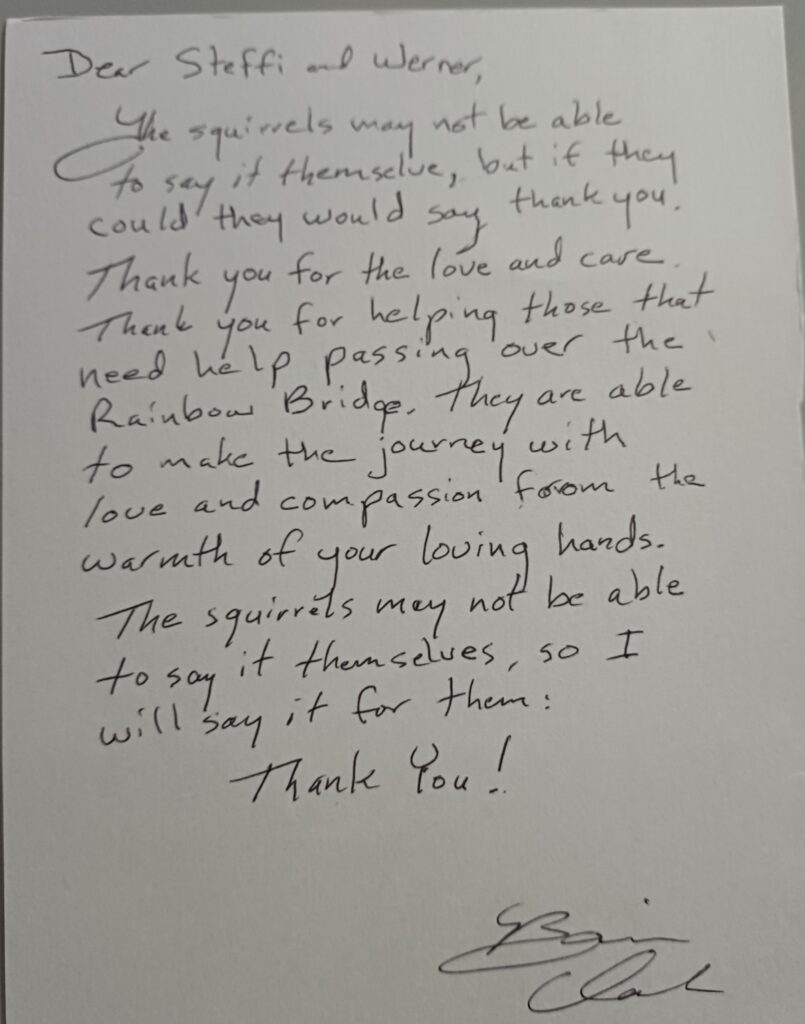 Dear Steffi and Werner,
The squirrels may not be able
to say it themselve, but if they
could they would say thank you.
Thank you for the love and care.
Thank you for helping those that
need help passing over the
Rainbow Bridge. They are able
to make the journey with
love and compassion from the
warmth of your loving hands.
The squirrels may not be able
to say it themselves, so I
will say it for them:
Thank You!